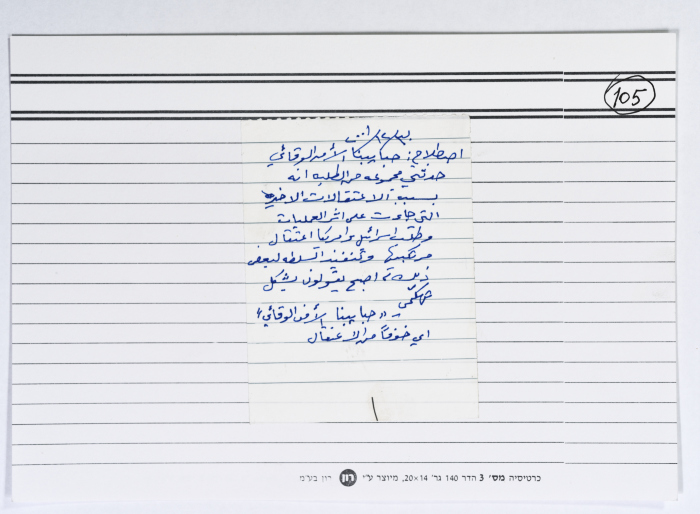 105
اصطلاح: حبايبنا الأمن الوقائي
حدثني مجموعه من الطلبه انه
بسبب الاعتقالات الاخيره
التي جاءت على اثر العمليات
وطلب اسرائيل وامريكا اعتقال
مرتكبيها وتنفيذ السلطه لبعض
ذلك تم اصبح يقولون بشكل
تهكمي
"حبايبنا الأمن الوقائي"
اي خوفاً من الاعتقال
כרטיסיה מס׳ 3 הדר 140 גר׳ 20×14, מיוצר ע״י רון רון בע״מ